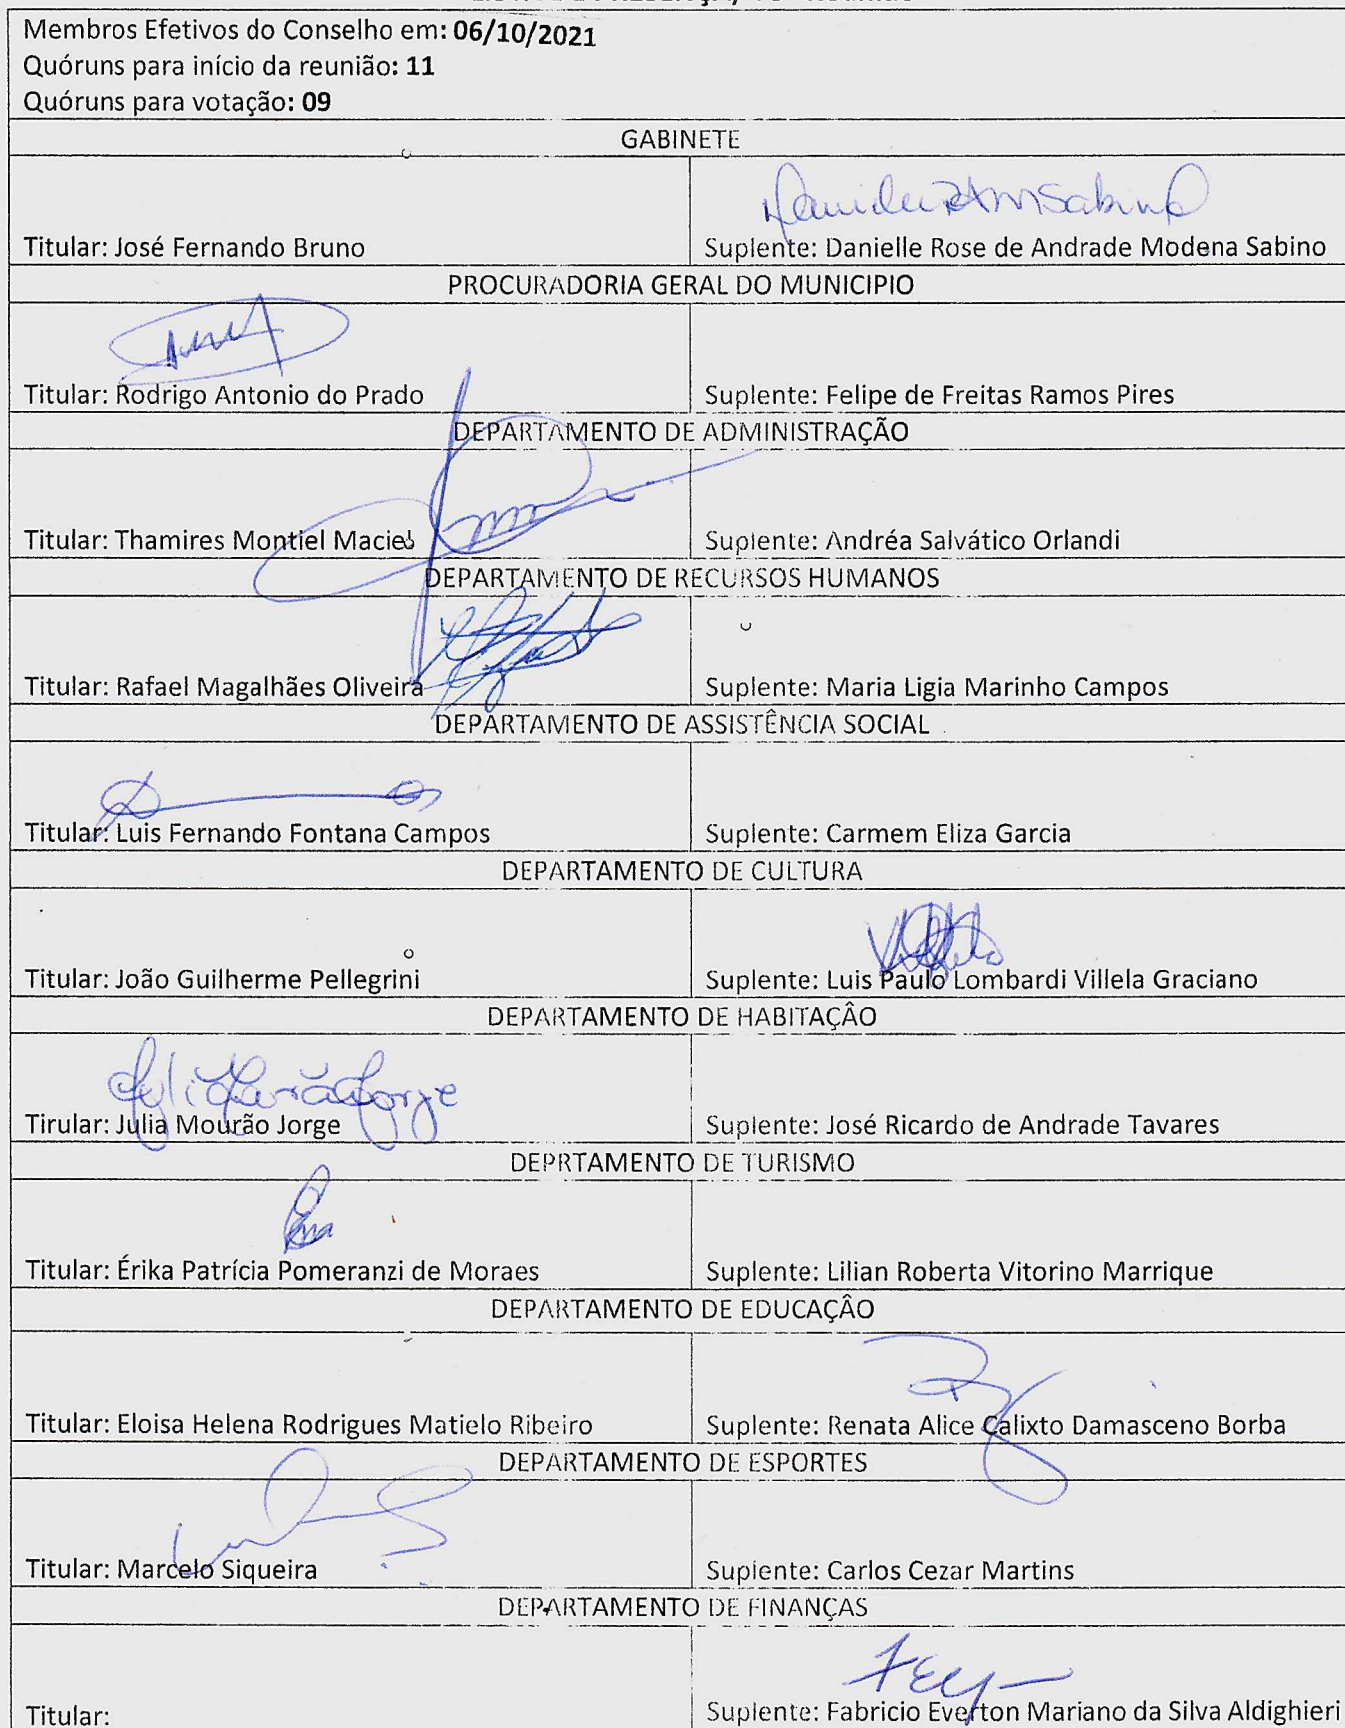 Membros Efetivos do Conselho em: 06/10/2021
Quóruns para início da reunião: 11
Quóruns para votação: 09
GABINETE
Titular: José Fernando Bruno
Suplente: Danielle Rose de Andrade Modena Sabino
PROCURADORIA GERAL DO MUNICIPIO
Titular: Rodrigo Antonio do Prado
Suplente: Felipe de Freitas Ramos Pires
DEPARTAMENTO DE ADMINISTRAÇÃO
Titular: Thamires Montiel Maciel
Suplente: Andréa Salvático Orlandi
DEPARTAMENTO DE RECURSOS HUMANOS
Titular: Rafael Magalhães Oliveira
Suplente: Maria Ligia Marinho Campos
DEPARTAMENTO DE ASSISTÊNCIA SOCIAL
Titular: Luis Fernando Fontana Campos
Suplente: Carmem Eliza Garcia
DEPARTAMENTO DE CULTURA
Titular: João Guilherme Pellegrini
Suplente: Luis Paulo Lombardi Villela Graciano
DEPARTAMENTO DE HABITAÇÂO
Julia Mourão Jorge
Tirular: Julia Mourão Jorge
Suplente: José Ricardo de Andrade Tavares
DEPRTAMENTO DE TURISMO
Titular: Érika Patrícia Pomeranzi de Moraes
Suplente: Lilian Roberta Vitorino Marrique
DEPARTAMENTO DE EDUCAÇÂO
Titular: Eloisa Helena Rodrigues Matielo Ribeiro
Suplente: Renata Alice Calixto Damasceno Borba
DEPARTAMENTO DE ESPORTES
Titular: Marcelo Siqueira
Suplente: Carlos Cezar Martins
DEPARTAMENTO DE FINANÇAS
Titular:
Suplente: Fabricio Everton Mariano da Silva Aldighieri